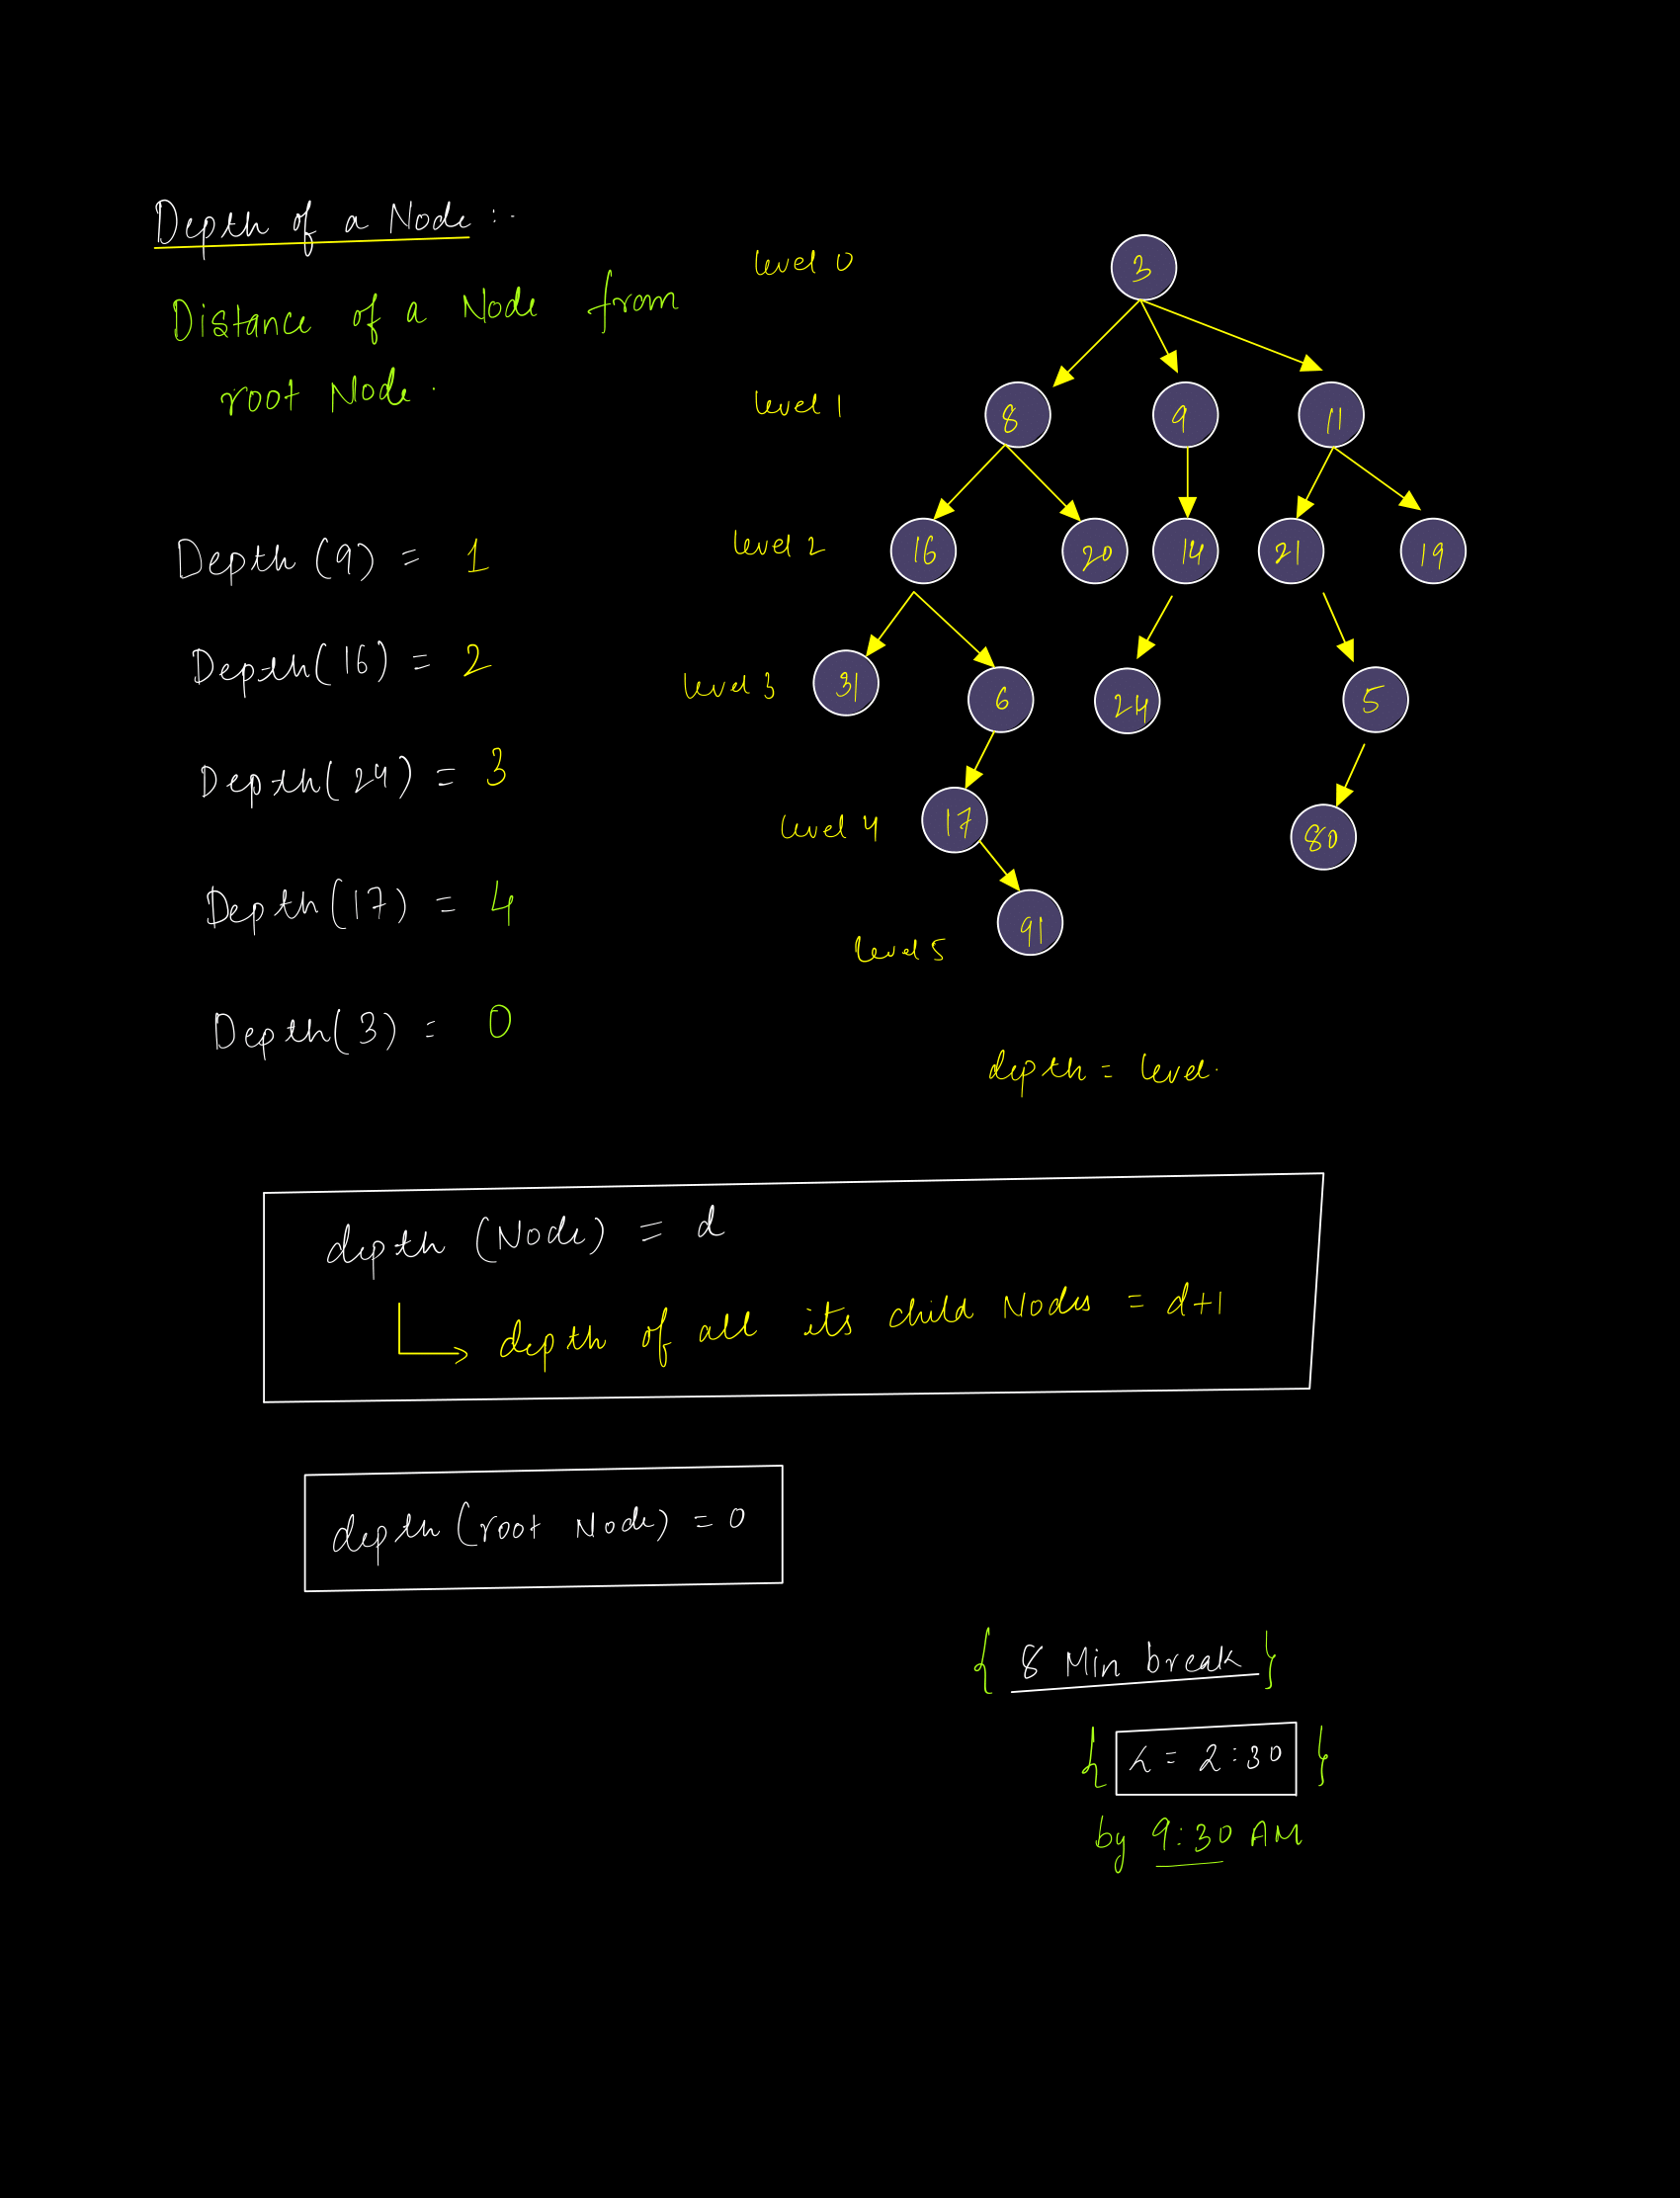 Depth of a Node :-
Distance of a Node from
root Node.
Depth (9) = 1
Depth(16) = 2
Depth(24) = 3
Depth(17) = 4
Depth(3) = 0
level 0
3
level 1
8 9 11
level 2
16 20 14 21 19
level 3
31 6 24 5
level 4
17 80
91
level 5
depth = level.
depth (Node) = d
depth of all its child Nodes = d+1
depth (root Node) = 0
{ 8 Min break }
{ = 2:30 }
by 9:30 AM